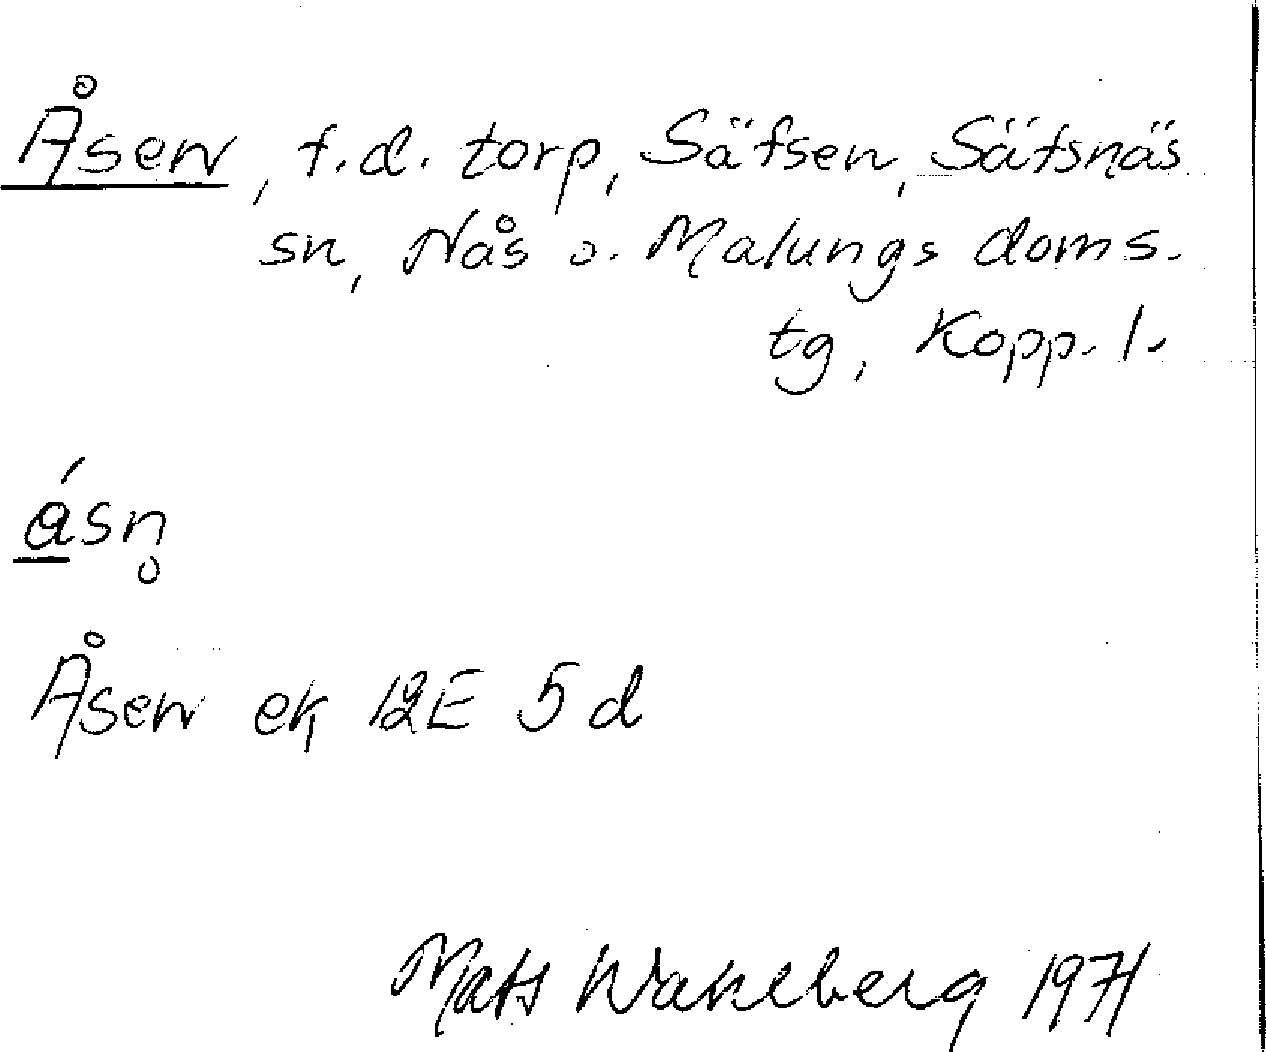 Åsen, f.d. torp, Säfsen, Säfsnäs
sn, Nås o. Malungs doms.
tg, Kopp. l.
ásn̥
Åsen ek 12E 5d
Mats Wahlberg 1971